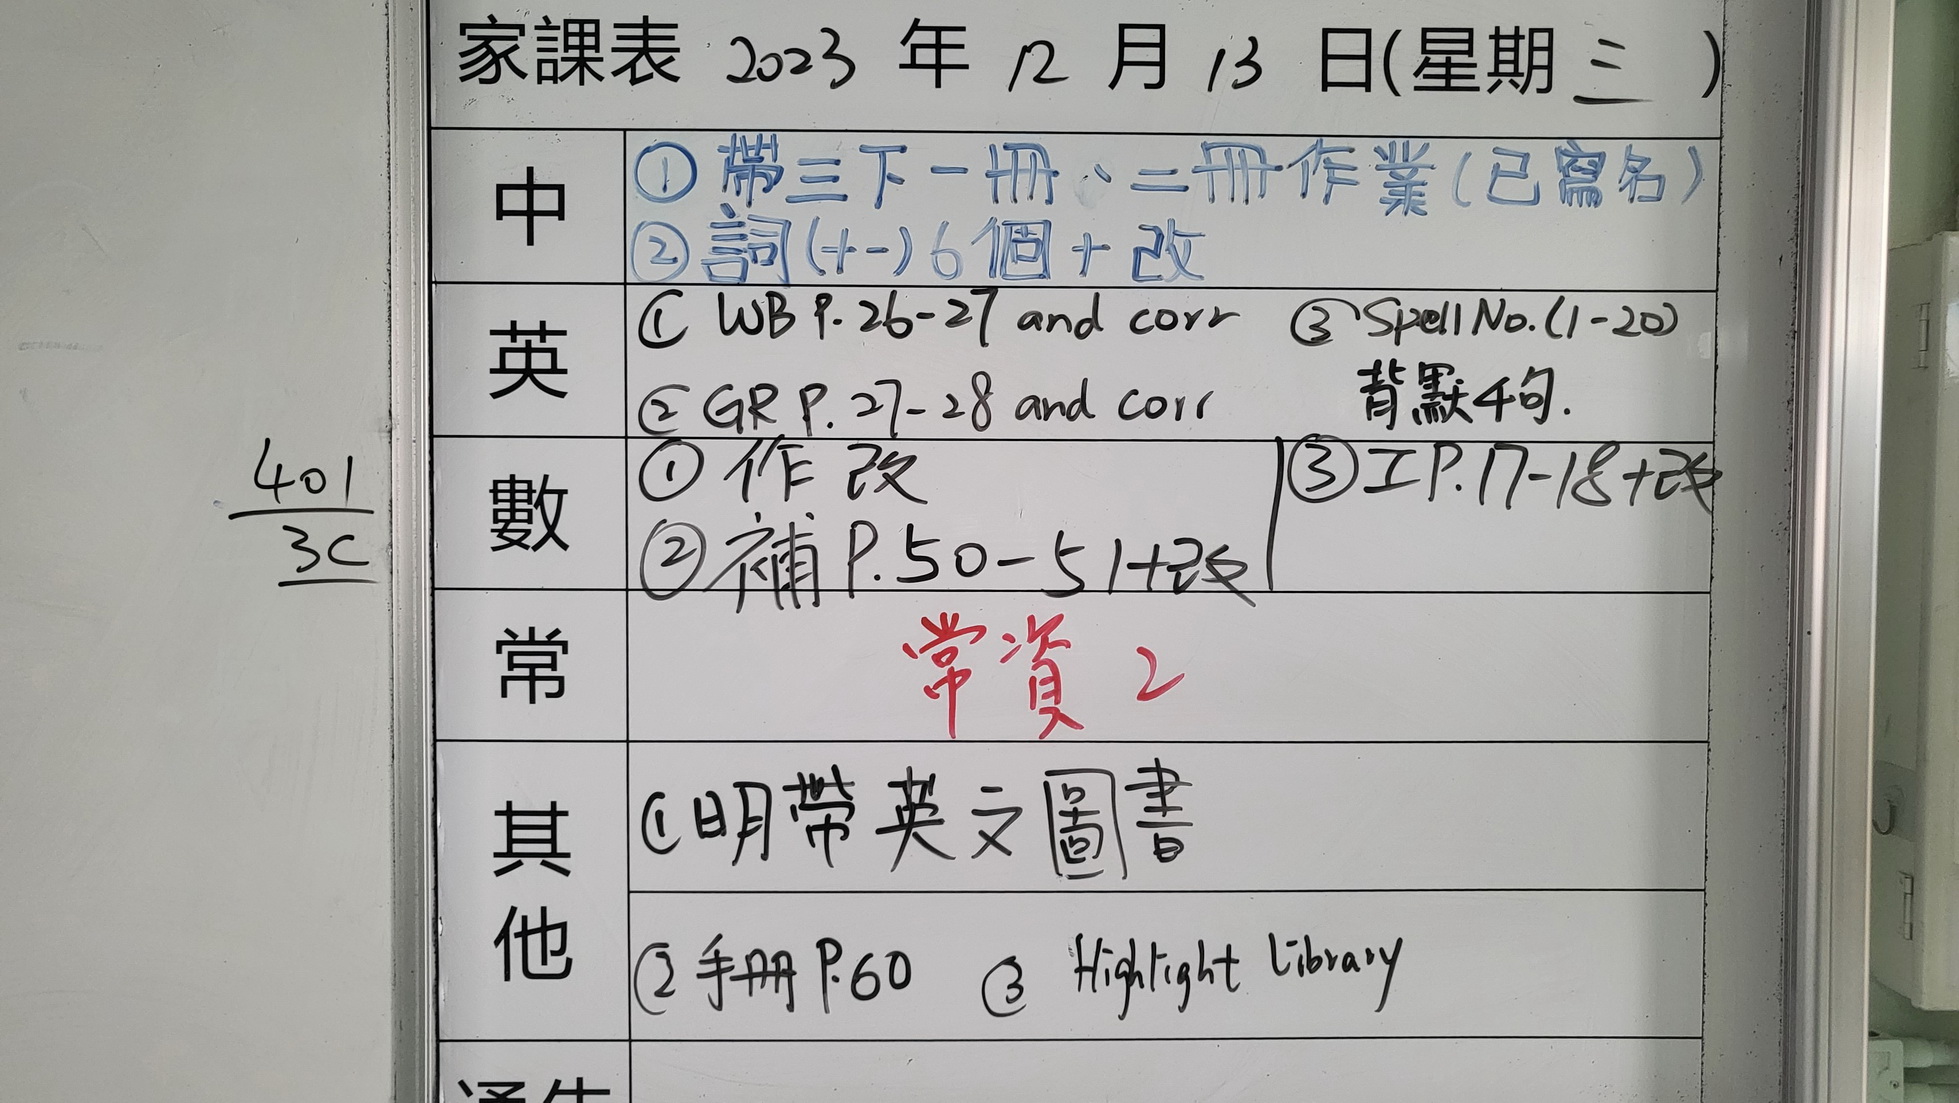 家課表 2023 年 12 月 13 日(星期 三 )
中
① 帶三下一冊、二冊作業(已寫名)
② 詞(+-)6個+改
英
① WB P.26-27 and corr ③ Spell No.(1-20)
② GR P.27-28 and corr 背默4句.
數
① 作改 ③ 工P.17-18+改
② 補P.50-51+改
401
3C
常
常資2
其他
① 明帶英文圖書
② 手冊P.60 ③ Highlight Library